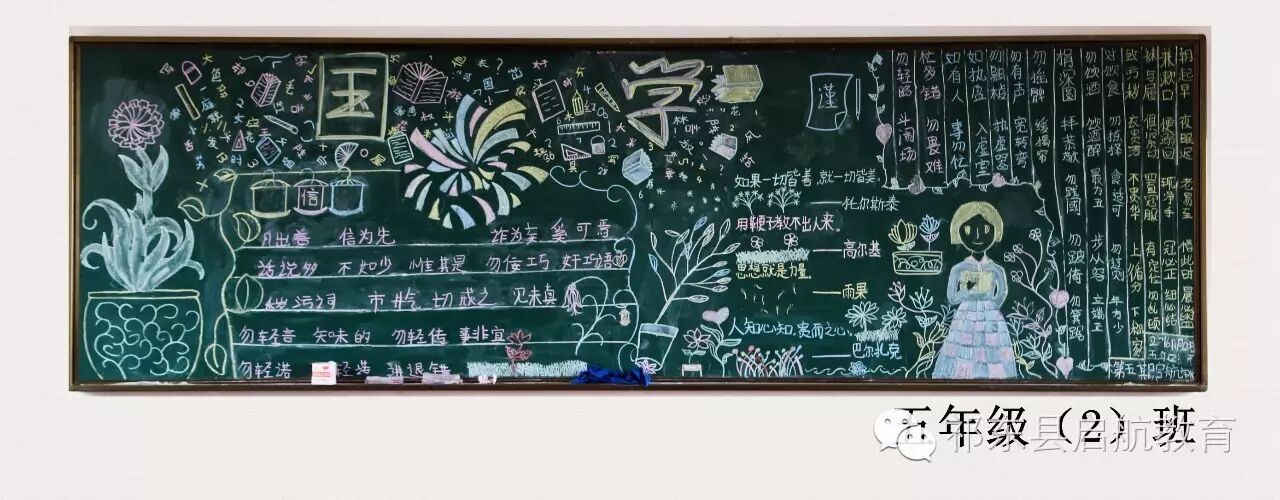 国学
信
凡出言 信为先 诈为妄 奚可焉
话说多 不如少 惟其是 勿佞巧 奸巧语
秽污词 市井气 切戒之 见未真
勿轻言 知味的 勿轻传 事非宜
勿轻诺 轻诺 进退错
如果一切皆善,就一切皆美。
——托尔斯泰
用鞭子教不出人来。
——高尔基
思想就是力量
——雨果
人知心知,贵而之心。
——巴尔扎克
谨
朝起早 夜眠迟 老易至 惜此时 晨必盥
兼漱口 便溺回 辄净手 冠必正 纽必结
袜与履 俱紧切 置冠服 有定位 勿乱顿
致污秽 衣贵洁 不贵华 上循分 下称家
对饮食 勿拣择 食适可 勿过则 年方少
勿饮酒 饮酒醉 最为丑 步从容 立端正
揖深圆 拜恭敬 勿践國 勿跛倚 勿箕踞
勿摇髀 缓揭帘
勿有声 宽转弯
勿触棱 执虚器
如执盈 入虚室
如有人 事勿忙
忙多错 勿畏难
勿轻略 斗闹场
第五期
五年级(2)班
祁东县启航教育